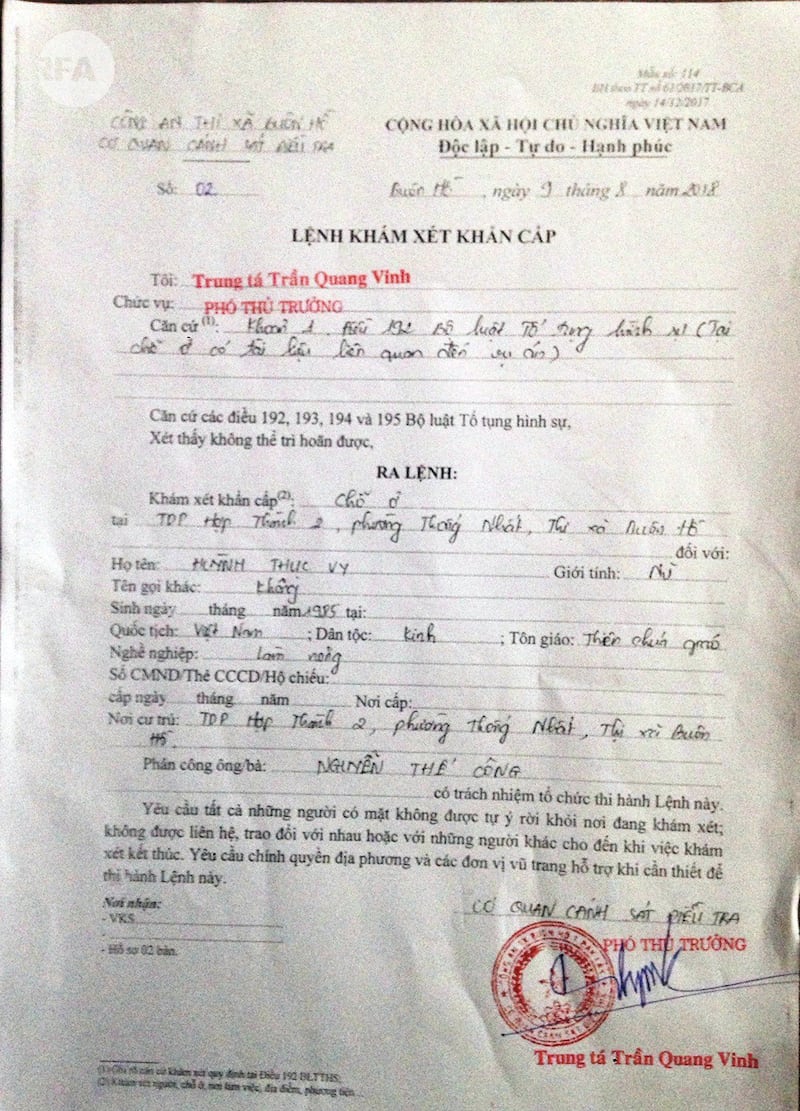 RFA
Mẫu số: 114
BH theo TT số 61/2017/TT-BCA
ngày 14/12/2017
CÔNG AN THỊ XÃ BUÔN HỒ
CƠ QUAN CẢNH SÁT ĐIỀU TRA
CỘNG HÒA XÃ HỘI CHỦ NGHĨA VIỆT NAM
Độc lập - Tự do - Hạnh phúc
Số: 02
Buôn Hồ, ngày 9 tháng 8 năm 2018
LỆNH KHÁM XÉT KHẨN CẤP
Tôi: Trung tá Trần Quang Vinh
Chức vụ: PHÓ THỦ TRƯỞNG
Căn cứ (1): Khoản 1, Điều 192 Bộ luật Tố tụng hình sự (Tại
chỗ ở có tài liệu liên quan đến vụ án)
Căn cứ các điều 192, 193, 194 và 195 Bộ luật Tố tụng hình sự,
Xét thấy không thể trì hoãn được,
RA LỆNH:
Khám xét khẩn cấp(2): Chỗ ở
tại TDP Hợp Thành 2, phường Thống Nhất, Thị xã Buôn Hồ
đối với:
Họ tên: HUỲNH THỤC VY Giới tính: Nữ
Tên gọi khác: Không
Sinh ngày tháng năm 1985 tại:
Quốc tịch: Việt Nam ; Dân tộc: Kinh ; Tôn giáo: Thiên chúa giáo
Nghề nghiệp: Làm nông
Số CMND/Thẻ CCCD/Hộ chiếu:
cấp ngày tháng năm Nơi cấp:
Nơi cư trú: TDP Hợp Thành 2, phường Thống Nhất, Thị xã Buôn
Hồ.
Phân công ông/bà: NGUYỄN THẾ CÔNG
có trách nhiệm tổ chức thi hành Lệnh này.
Yêu cầu tất cả những người có mặt không được tự ý rời khỏi nơi đang khám xét;
không được liên hệ, trao đổi với nhau hoặc với những người khác cho đến khi việc khám
xét kết thúc. Yêu cầu chính quyền địa phương và các đơn vị vũ trang hỗ trợ khi cần thiết để
thi hành Lệnh này.
Nơi nhận:
- VKS
-
- Hồ sơ 02 bản.
CƠ QUAN CẢNH SÁT ĐIỀU TRA
PHÓ THỦ TRƯỞNG
Trung tá Trần Quang Vinh
(1) Ghi rõ căn cứ khám xét quy định tại Điều 192 BLTTHS;
(2) Khám xét người, chỗ ở, nơi làm việc, địa điểm, phương tiện...